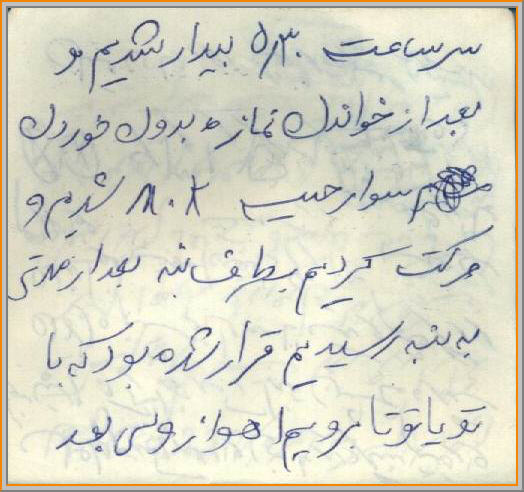 سر ساعت ۵/۳۰ بیدار شدیم و
بعد از خواندن نماز و بدون خوردن
سوار جیپ شدیم و
حرکت کردیم بطرف بنه بعد از مدتی
به بنه رسیدیم قرار شده بود که با
تویاتو تا برویم اهواز ولی بعد